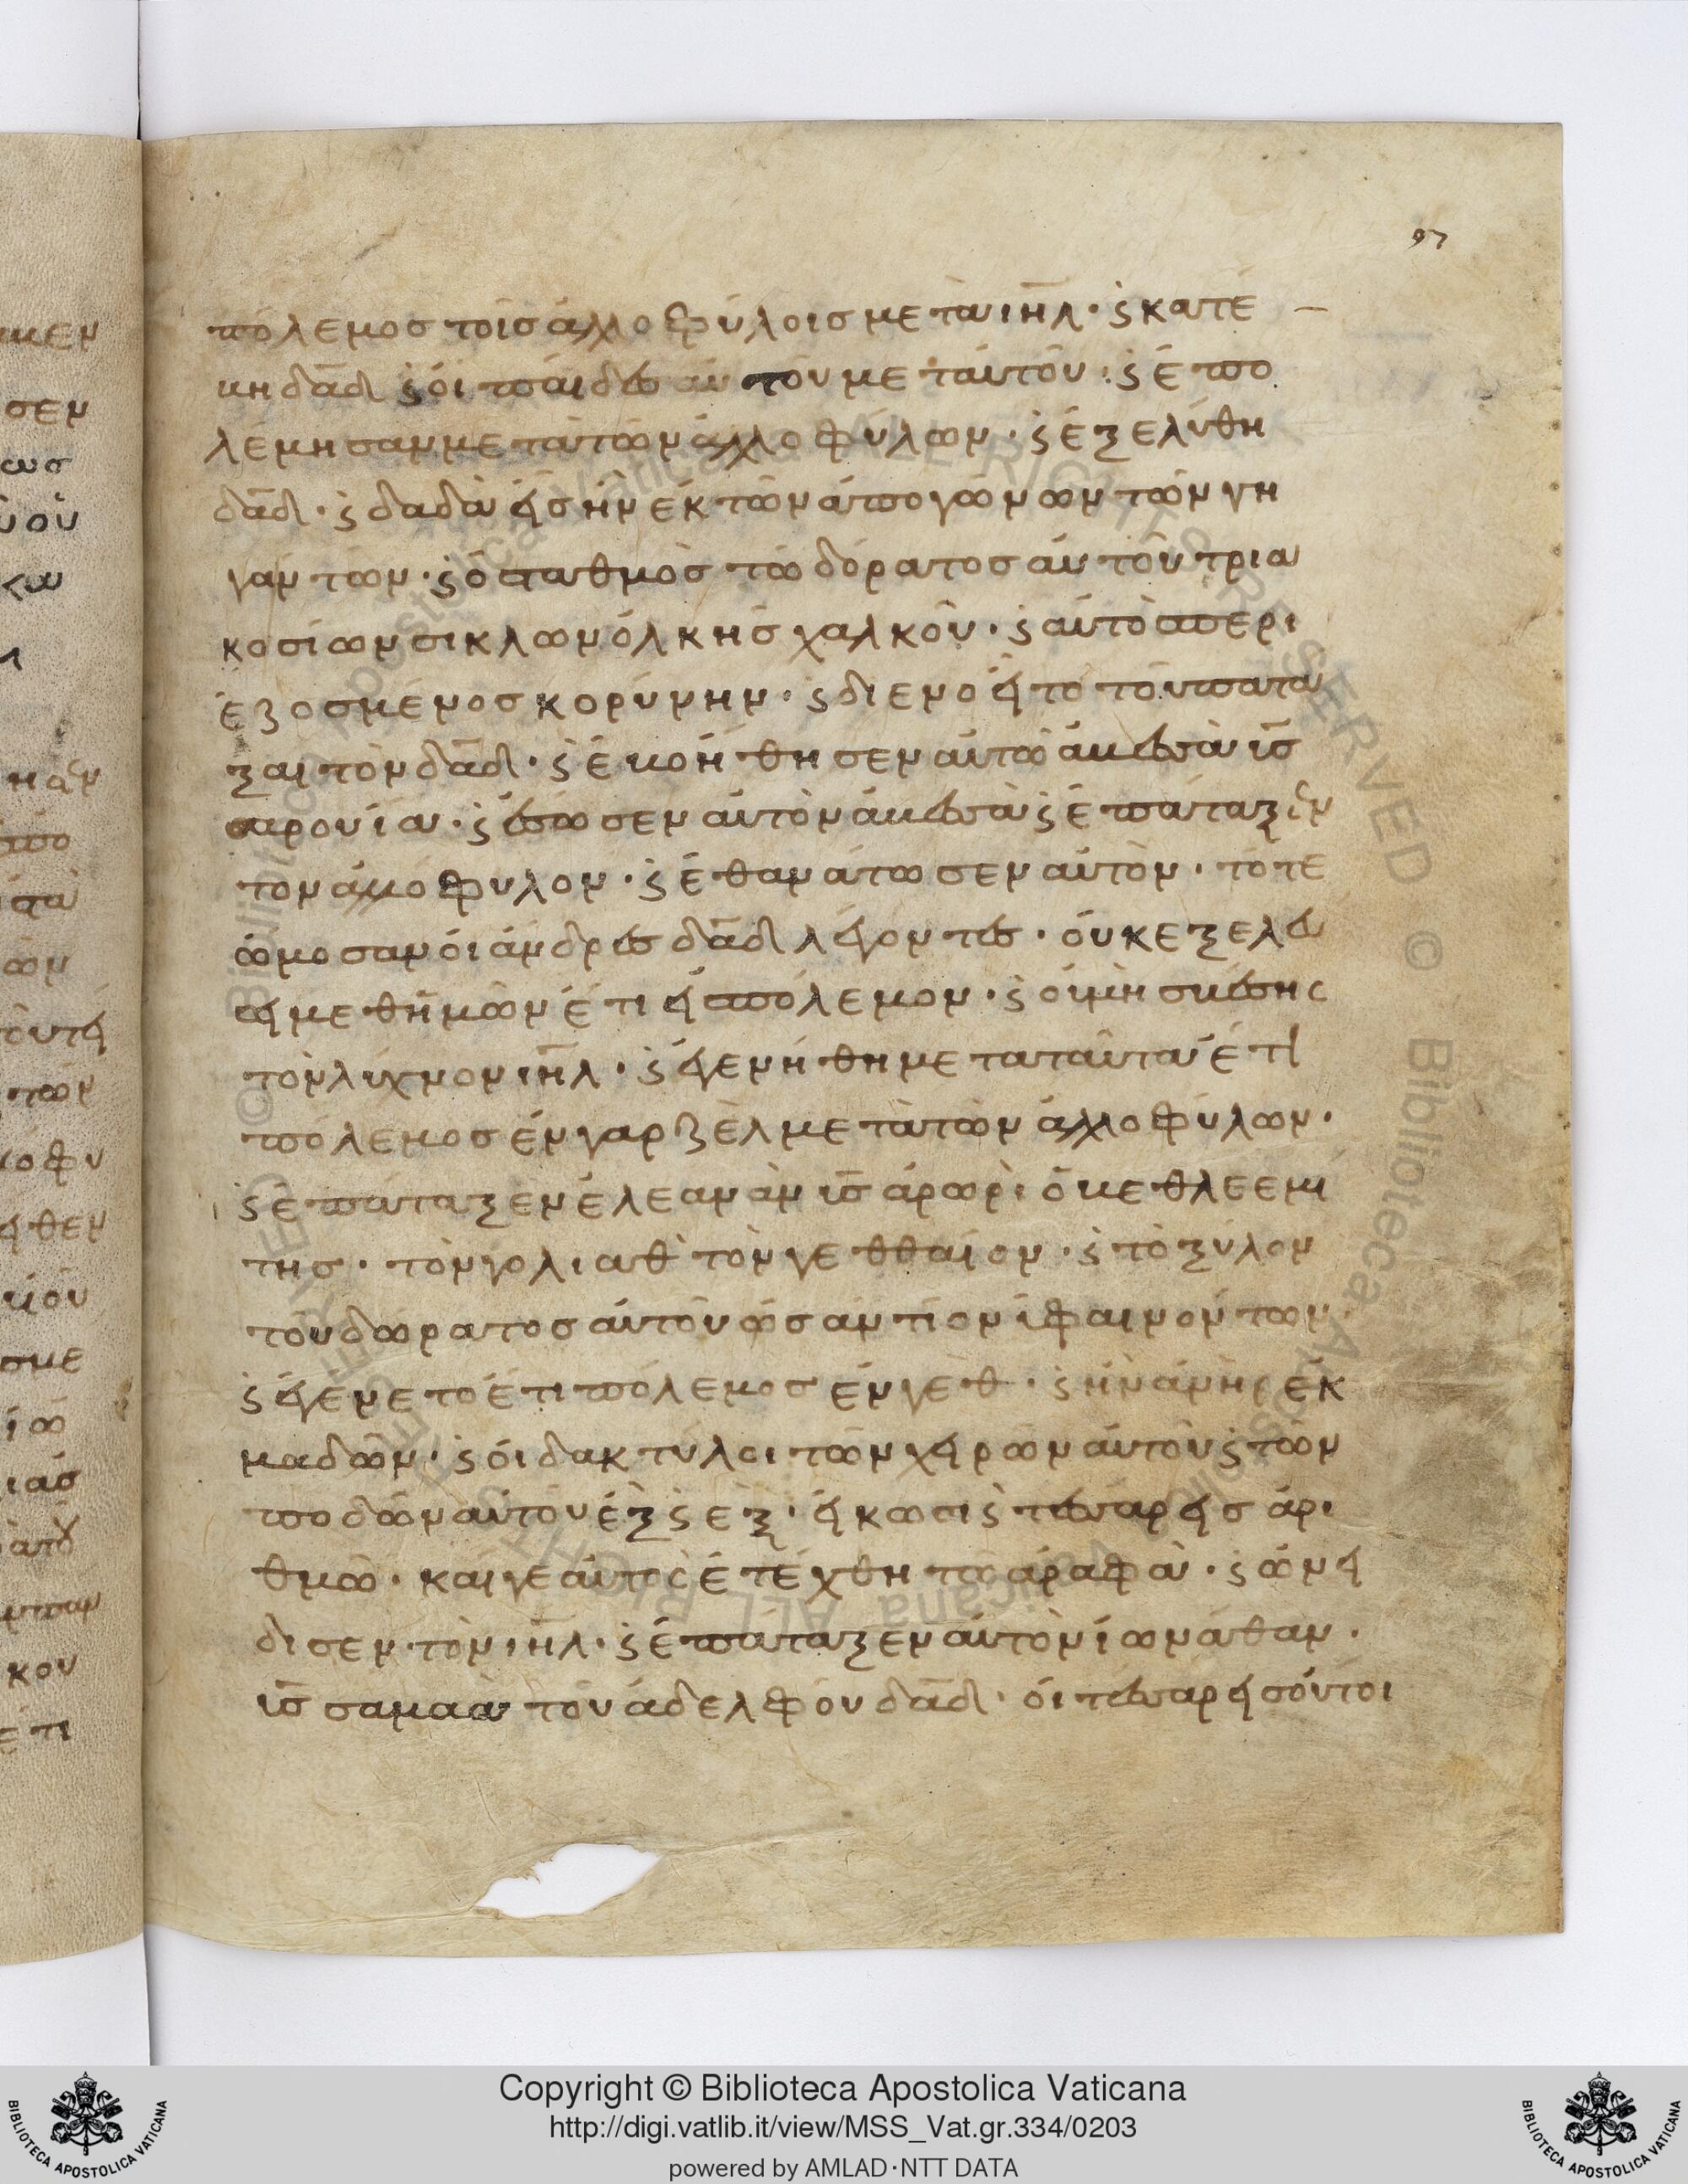 97
πόλεμος τοῖς ἀλλοφύλοις μετὰ ιῆλ· ϗ κατέ
κη δᾶδ ϗ ὁι παιδες αυτοῦ μετ αὐτοῦ· ϗ ἐπο
λέμησαν μετὰ τῶν ἀλλοφύλων· ϗ ἐξελύθη
δᾶδ· ϗ δαδὰ εἰς ἢν ἐκ τῶν ἀπογώνων τῶν γη
γάντων· ϗ ὁ σταθμὸς τῶ δόρατος αὐτοῦ τρια
κοσίων σικλων ὁλκῆς χαλκοῦ· ϗ αὐτὸς περι
ἐζοσμένος κορύνην· ϗ διενοεῖτο τοῦ πατα
ξαι τὸν δᾶδ· ϗ ἐβοήθησεν αὐτῶ ἀβεσσὰ ῦς
σαρουία· ϗ ἔσωσεν αὐτὸν ἀβεσσὰ ϗ ἐπάταξεν
τον ἀλλόφυλον· ϗ ἐθανάτωσεν αὐτόν· τότε
ὤμοσαν ὁι ἄνδρες δᾶδ λέγοντες· οὐκ εξελεύ
σει μεθ ἡμῶν ἔτι εἰς πόλεμον· ϗ οὐ μὴ σβέσης
τὸν λύχνον ιῆλ· ϗ ἐγενήθη μετα ταῦτα ἔτι
πόλεμος ἐν γαρζὲλ μετὰ τῶν ἀλλοφύλων·
ϗ ἐπάταξεν ἐλεανὰν ῦς ἀρωρὶ ὁ βεθλεεμι
της· τὸν γολιαθ τὸν γεθθαίον· ϗ τὸ ξύλον
τοῦ δώρατος αὐτοῦ ὡς ἀντίον ὑφαινούντων
ϗ ἐγένετο ἔτι πόλεμος ἐν γὲθ· ϗ ἦν ἀνὴρ ἐκ
μαδῶν· ϗ ὁι δακτύλοι τῶν χειρῶν αὐτοῦ ϗ τῶν
ποδῶν αὐτοῦ ἓξ ϗ ἓξ· εἴκωσι ϗ τέσσαρεις ἀρι
θμῶ· και γε αὐτὸς ἐτέχθη τῶ ἀραφὰ· ϗ ὠνεί
δισεν τὸν ιῆλ· ϗ ἐπάταξεν αὐτὸν ἰωνάθαν·
ῦς σαμαὰ τοῦ ἀδελφοῦ δᾶδ· ὁι τέσσαρεις οὗτοι
Copyright © Biblioteca Apostolica Vaticana
http://digi.vatlib.it/view/MSS_Vat.gr.334/0203
powered by AMLAD·NTT DATA
BIBLIOTECA APOSTOLICA VATICANA
BIBLIOTECA APOSTOLICA VATICANA